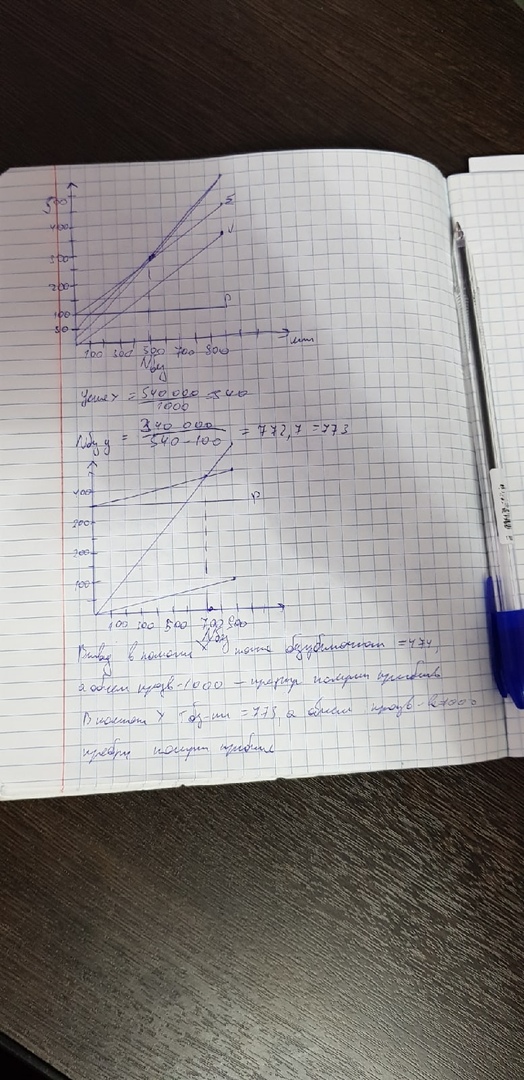 500
400
Σ
V
300
200
100
P
50
100 300 500 700 900 шт
Nбу
Цена Y = 540 000 / 1000 = 540
Nбу y = 340 000 / 540 - 100 = 772,7 = 773
400
P
300
200
100
100 300 500 700 900
Nбу
Вывод в компании X точка безубыточности = 474,
а объем произв - 1000 - предпр получит прибыль
В компании Y т бз-ти = 773, а объем произв - 1000
предпр получит прибыль